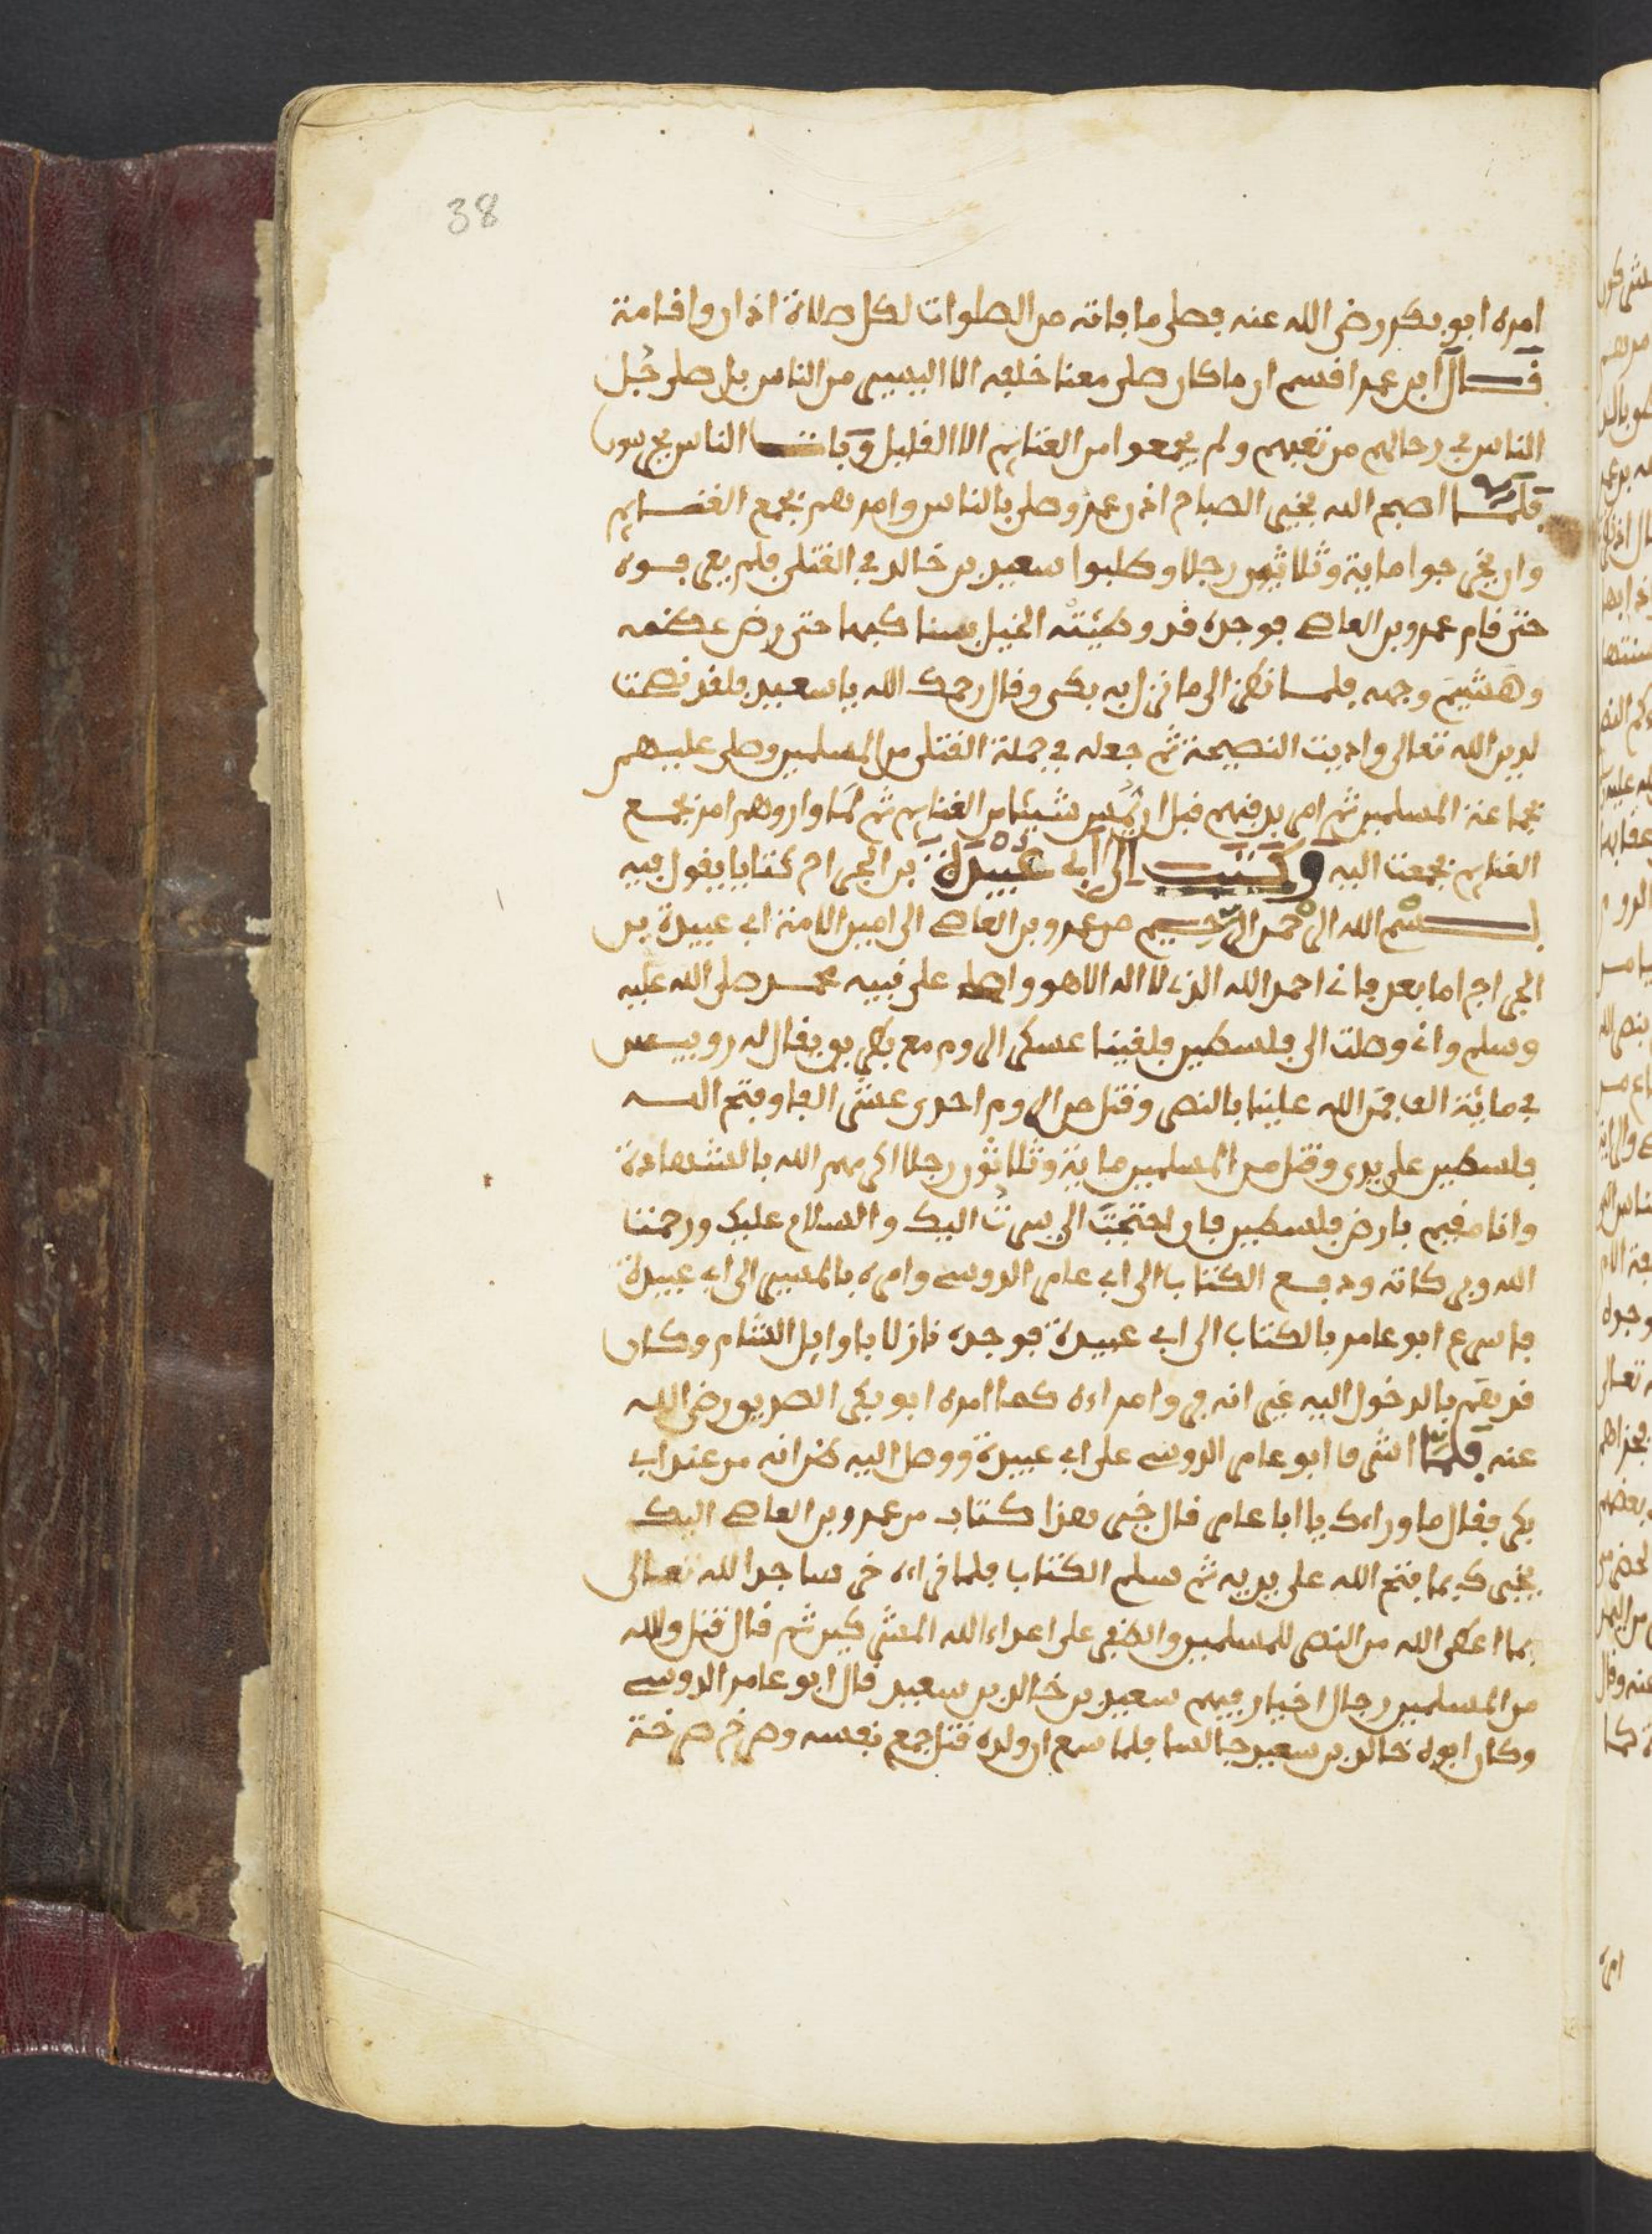 38
امره ابو بكر رضى الله عنه فصلى ما فاته من الصلوات لكل صلاة اذان واقامة
قال ابن عمر اقسم ان ما كان صلى معنا خلفه الا اليسير من الناس بل صلى جُل
الناس في رحالهم من تعبهم ولم يجمعوا من الغنايم الا القليل وبات الناس يحرسون
فلما اصبح الله بخير الصباح اذن عمر وصلى بالناس وامرهم بجمع الغنايم
وان يخرجوا ماية وثلاثين رجلا وطلبوا سعيد بن خالد في القتلى فلم يعرفوه
حتى قام عمرو بن العاصي فوجده قد وطئته الخيل بسنابكها حتى رض عظمه
وهشيم وجهه فلما نظر الى ما نزل به بكى وقال رحمك الله يا سعيد فلقد نصحت
لدين الله تعالى واديت النصيحة ثم جعله في جملة القتلى من المسلمين وصلى عليهم
جماعة المسلمين ثم امر بدفنهم قبل ان يُمس شيئا من الغنايم ثم لما واروهم امر بجمع
الغنايم فجمعت اليه وكتب الى ابي عبيدة بن الجراح كتابا يقول فيه
بسم الله الرحمن الرحيم من عمرو بن العاصي الى امين الامة ابي عبيدة بن
الجراح اما بعد فاني احمد الله الذي لا اله الا هو واصلى على نبيه محمد صلى الله عليه
وسلم واني وصلت الى فلسطين فلقينا عسكر الروم مع بطريق يقال له روبيس
في ماية الف فمنّ الله علينا بالنصر وقتل من الروم احدى عشر الفا وفتح الله
فلسطين على يدي وقتل من المسلمين ماية وثلاثون رجلا اكرمهم الله بالشهادة
وانا مقيم بارض فلسطين فان احتجتَ الي سرتُ اليك والسلام عليك ورحمت
الله وبركاته ودفع الكتاب الى ابي عامر الدوسي وامره بالمسير الى ابي عبيدة
فاسرع ابو عامر بالكتاب الى ابي عبيدة فوجده نازلا باوايل الشام وكان
قد بهم بالدخول اليه غير انه في وامراءه كما امره ابو بكر الصديق رضى الله
عنه فلما اشرفا ابو عامر الدوسي على ابي عبيدة ووصل اليه ظن انه من عند ابي
بكر فقال ما وراءك يا ابا عامر قال خير هذا كتاب من عمرو بن العاصي اليك
يخبرك بما فتح الله على يديه ثم سلم الكتاب فلما قراه خر ساجدا لله تعالى
بما اعطى الله من النصر للمسلمين والظفر على اعداء الله المشركين ثم قال قتل والله
من المسلمين رجال اخيار فيهم سعيد بن خالد بن سعيد قال ابو عامر الدوسي
وكان ابوه خالد بن سعيد جالسا فلما سمع ان ولده قتل جمع نفسه وصرخ صرخة